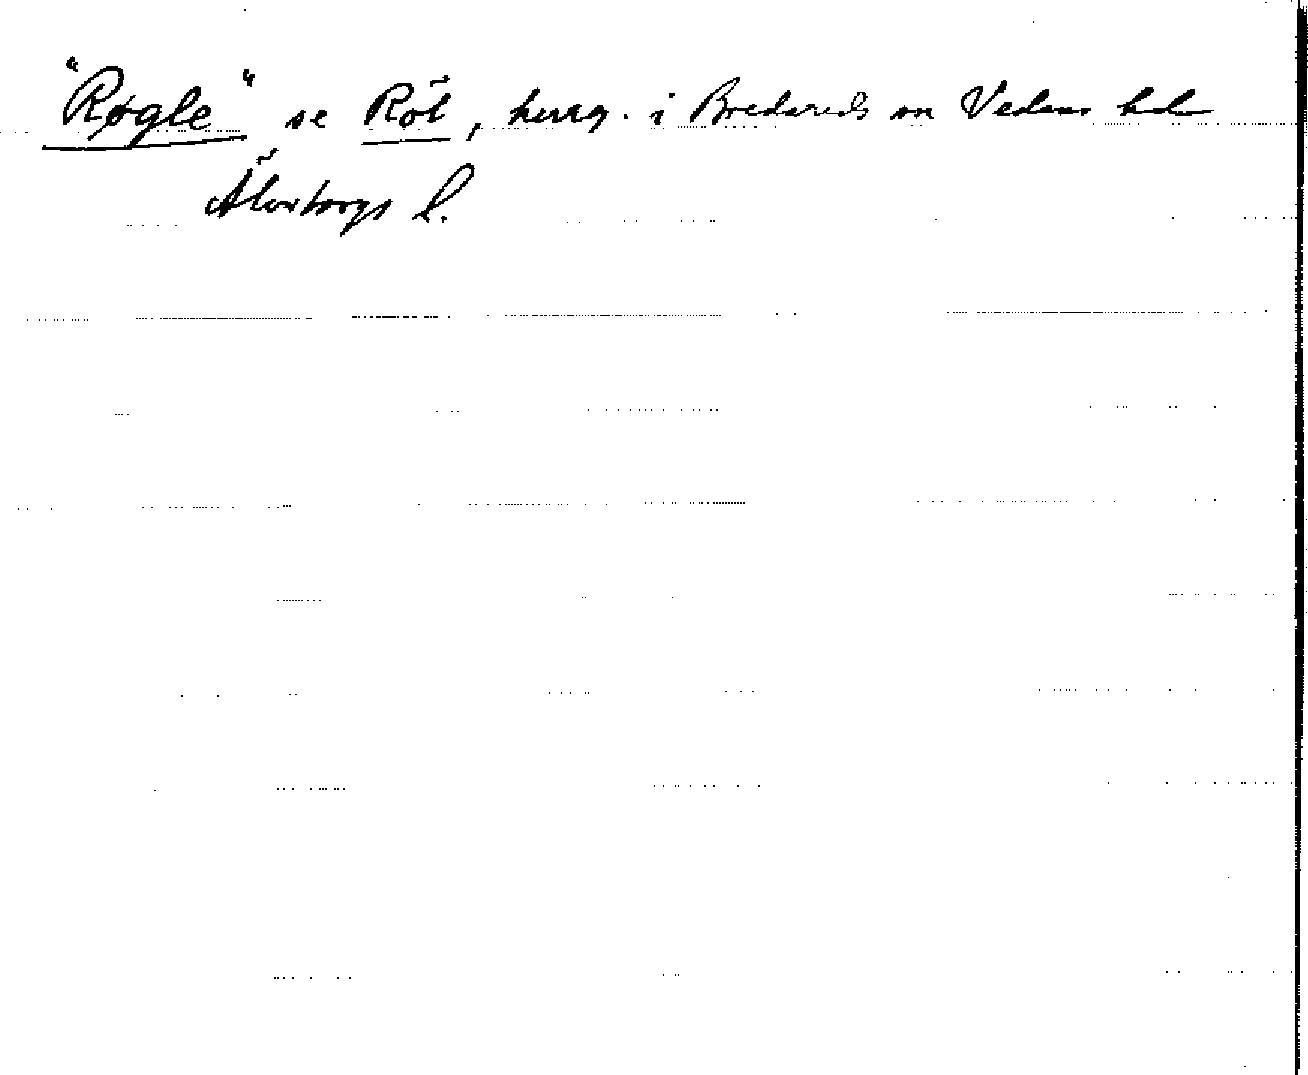 "Røgle" se Röl, herrg. i Bredareds sn Vedens hd
Älvsborgs l.